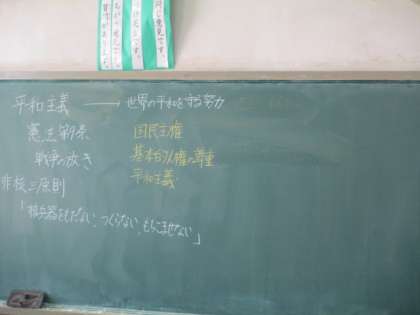 同じ意見です。
平和主義 → 世界の平和を守る努力
憲法第9条
戦争の放き
非核三原則
「核兵器をもたない、つくらない、もちこませない」
国民主権
基本的人権の尊重
平和主義